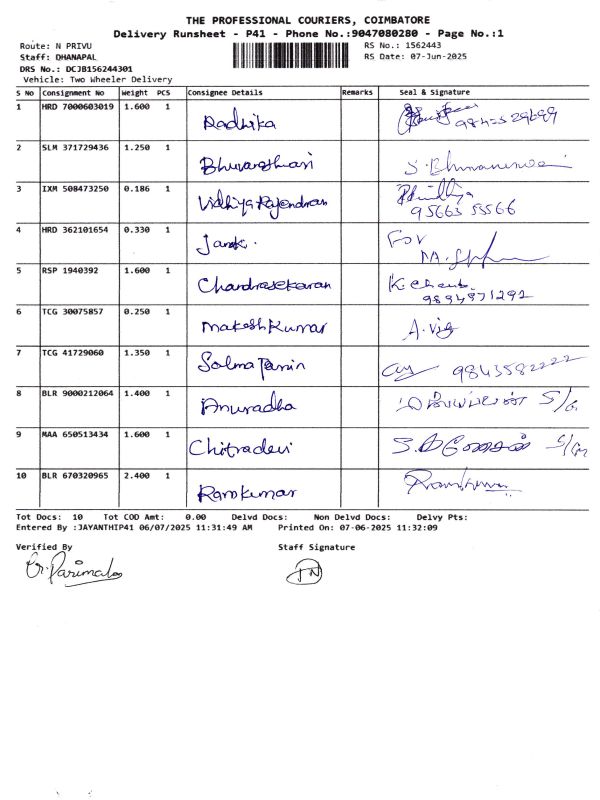 THE PROFESSIONAL COURIERS, COIMBATORE
Delivery Runsheet - P41 - Phone No.:9047080280 - Page No.:1
Route: N PRIVU RS No.: 1562443
Staff: DHANAPAL RS Date: 07-Jun-2025
DRS No.: DCJB156244301
Vehicle: Two Wheeler Delivery
S No Consignment No Weight PCS Consignee Details Remarks Seal & Signature
1 HRD 7000603019 1.600 1 Radhika
2 SLM 371729436 1.250 1 Bhuvaneshwari S. Bhuvaneswari
3 IXM 508473250 0.186 1 Vidhiya Rajendran
95663 55566
4 HRD 362101654 0.330 1 For
M.
5 RSP 1940392 1.600 1 Chandrasekaran K.
9894871292
6 TCG 30075857 0.250 1 Makesh Kumar A. Vig
7 TCG 41729060 1.350 1 Salma 9843582222
8 BLR 9000212064 1.400 1 Anuradha S/G
9 MAA 650513434 1.600 1 Chitradevi
10 BLR 670320965 2.400 1 Ramkumar Ramkumar
Tot Docs: 10 Tot COD Amt: 0.00 Delvd Docs: Non Delvd Docs: Delvy Pts:
Entered By :JAYANTHIP41 06/07/2025 11:31:49 AM Printed On: 07-06-2025 11:32:09
Verified By Staff Signature